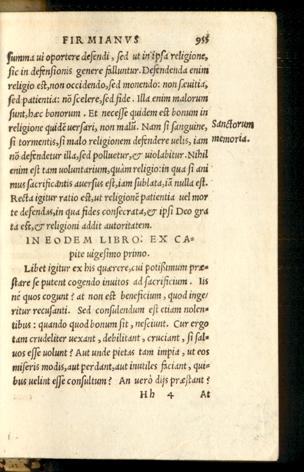 FIRMIANVS 955
summa ui oportere defendi, sed ut in ipsa religione,
sic in defensionis genere falluntur. Defendenda enim
religio est, non occidendo, sed monendo: non sæuitia,
sed patientia: nō scelere, sed fide. Illa enim malorum
sunt, hæc bonorum. Et necesse quidem est bonum in
religione quidē uersari, non malū. Nam si sanguine,
si tormentis, si malo religionem defendere uelis, iam
nō defendetur illa, sed polluetur, & uiolabitur. Nihil
enim est tam uoluntarium, quàm religio: in qua si ani
mus sacrificātis auersus est, iam sublata, iā nulla est.
Recta igitur ratio est, ut religionē patientia uel mor
te defendas, in qua fides conseruata, & ipsi Deo gra
ta est, & religioni addit autoritatem.
Sanctorum
memoria.
IN EODEM LIBRO: EX CA-
pite uigesimo primo.
Libet igitur ex his quærere, cui potißimum præ-
stare se putent cogendo inuitos ad sacrificium. Iis
né quos cogunt? at non est beneficium, quod inge-
ritur recusanti. Sed consulendum est etiam nolen-
tibus: quando quod bonum sit, nesciunt. Cur ergo
tam crudeliter uexant, debilitant, cruciant, si sal-
uos esse uolunt? Aut unde pietas tam impia, ut eos
miseris modis, aut perdant, aut inutiles faciant, qui-
bus uelint esse consultum? An uerò dijs præstant?
Hh 4 At